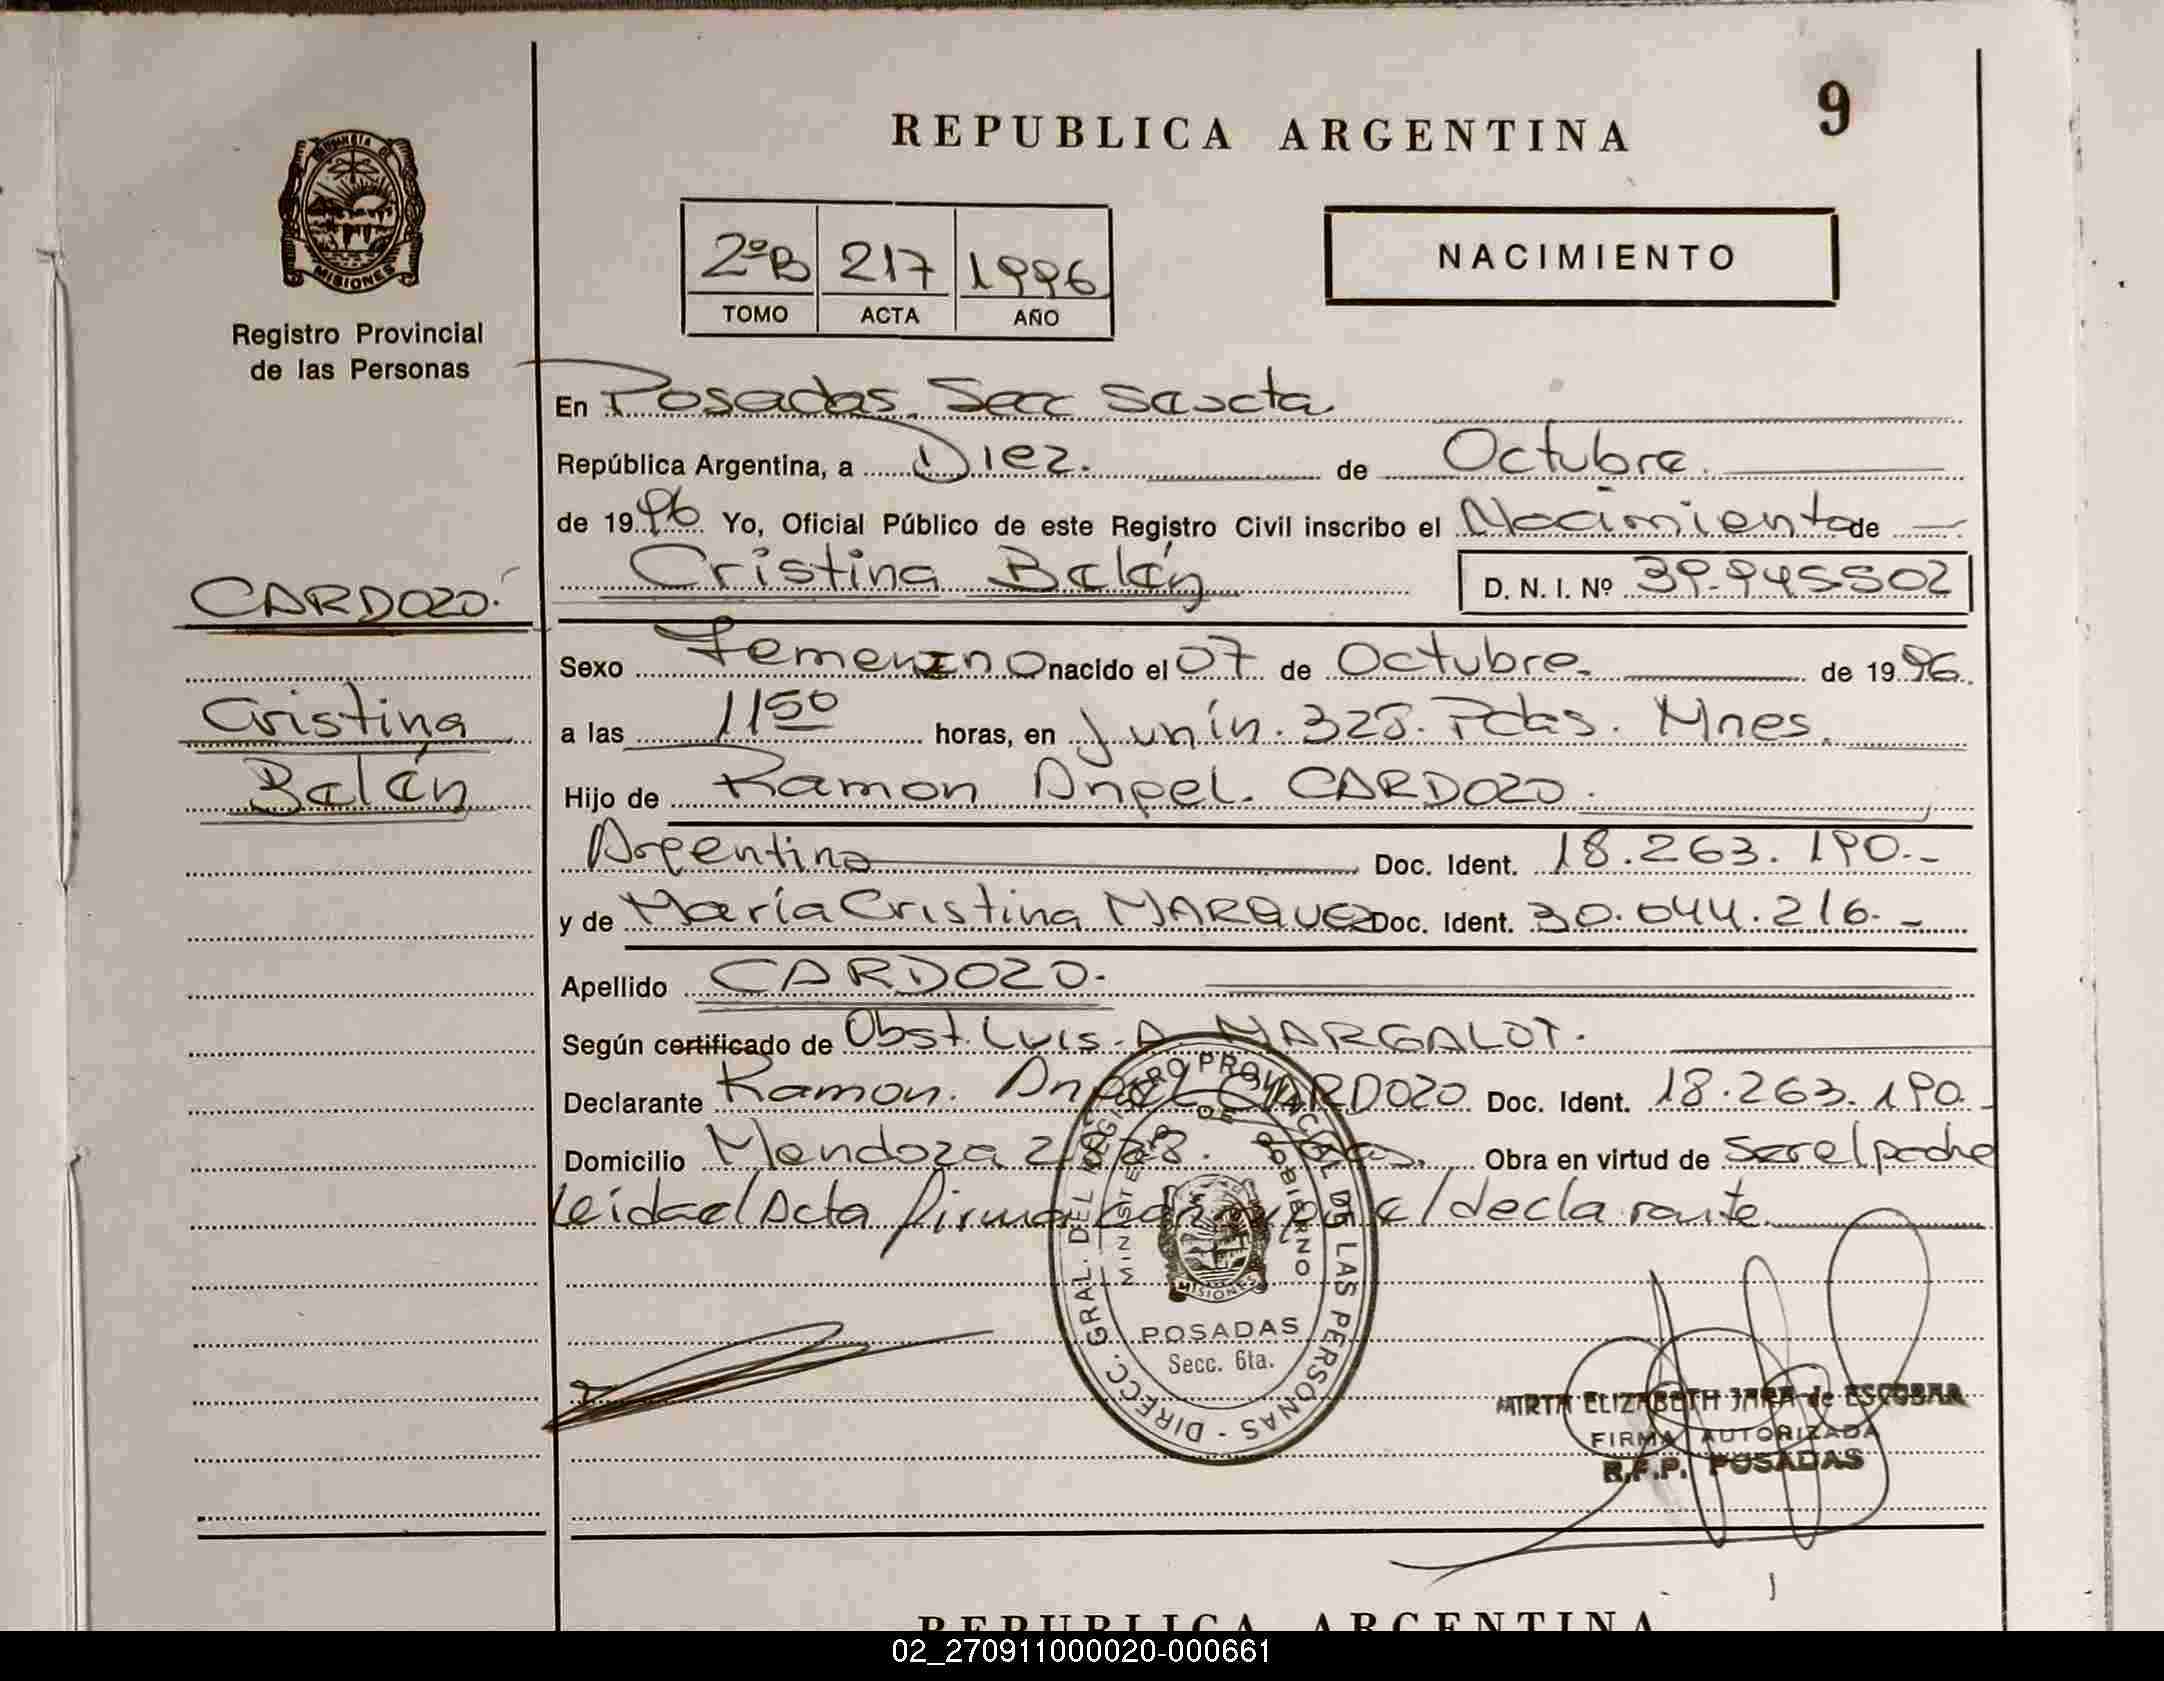 9
REPUBLICA ARGENTINA
PROVINCIA DE
MISIONES
Registro Provincial
de las Personas
2ºB 217 1996
TOMO ACTA AÑO
NACIMIENTO
En Posadas Secc Sexta
República Argentina, a Diez. de Octubre.
de 1996 Yo, Oficial Público de este Registro Civil inscribo el Nacimiento de
Cristina Belén D. N. I. Nº 39.945502
CARDOZO.
Sexo Femenino nacido el 07 de Octubre. de 1996.
Cristina
a las 11 50 horas, en Junín. 328. Pdas. Mnes.
Belén
Hijo de Ramon Angel. CARDOZO.
Argentino Doc. Ident. 18.263.190.-
y de María Cristina MARQUEZ Doc. Ident. 30.044.216.-
Apellido CARDOZO.
Según certificado de Obst. Luis. A MARGALOT.
Declarante Ramon. Angel CARDOZO Doc. Ident. 18.263.190.
Domicilio Mendoza Obra en virtud de ser el padre
Leida el Acta firma el declarante
DIRECC. GRAL. DEL REGISTRO PROVINCIAL DE LAS PERSONAS -
MINISTERIO DE GOBIERNO
MISIONES
POSADAS
Secc. 6ta.
MIRTA ELIZABETH JARA de ESCOBAR
FIRMA AUTORIZADA
R.P.P. POSADAS
REPUBLICA ARGENTINA
02_270911000020-000661